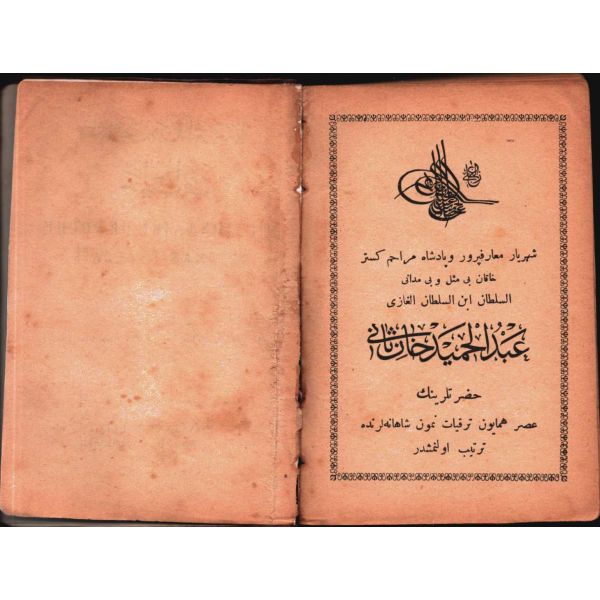 شهریار معارفپرور و پادشاه مراحم کستر
خاقان بی مثل و بی مدانی
السلطان ابن السلطان الغازی
عبد الحمید خان ثانی
حضرتلرینك
عصر همایون ترقیات نمون شاهانه‌لرنده
ترتیب اولنمشدر